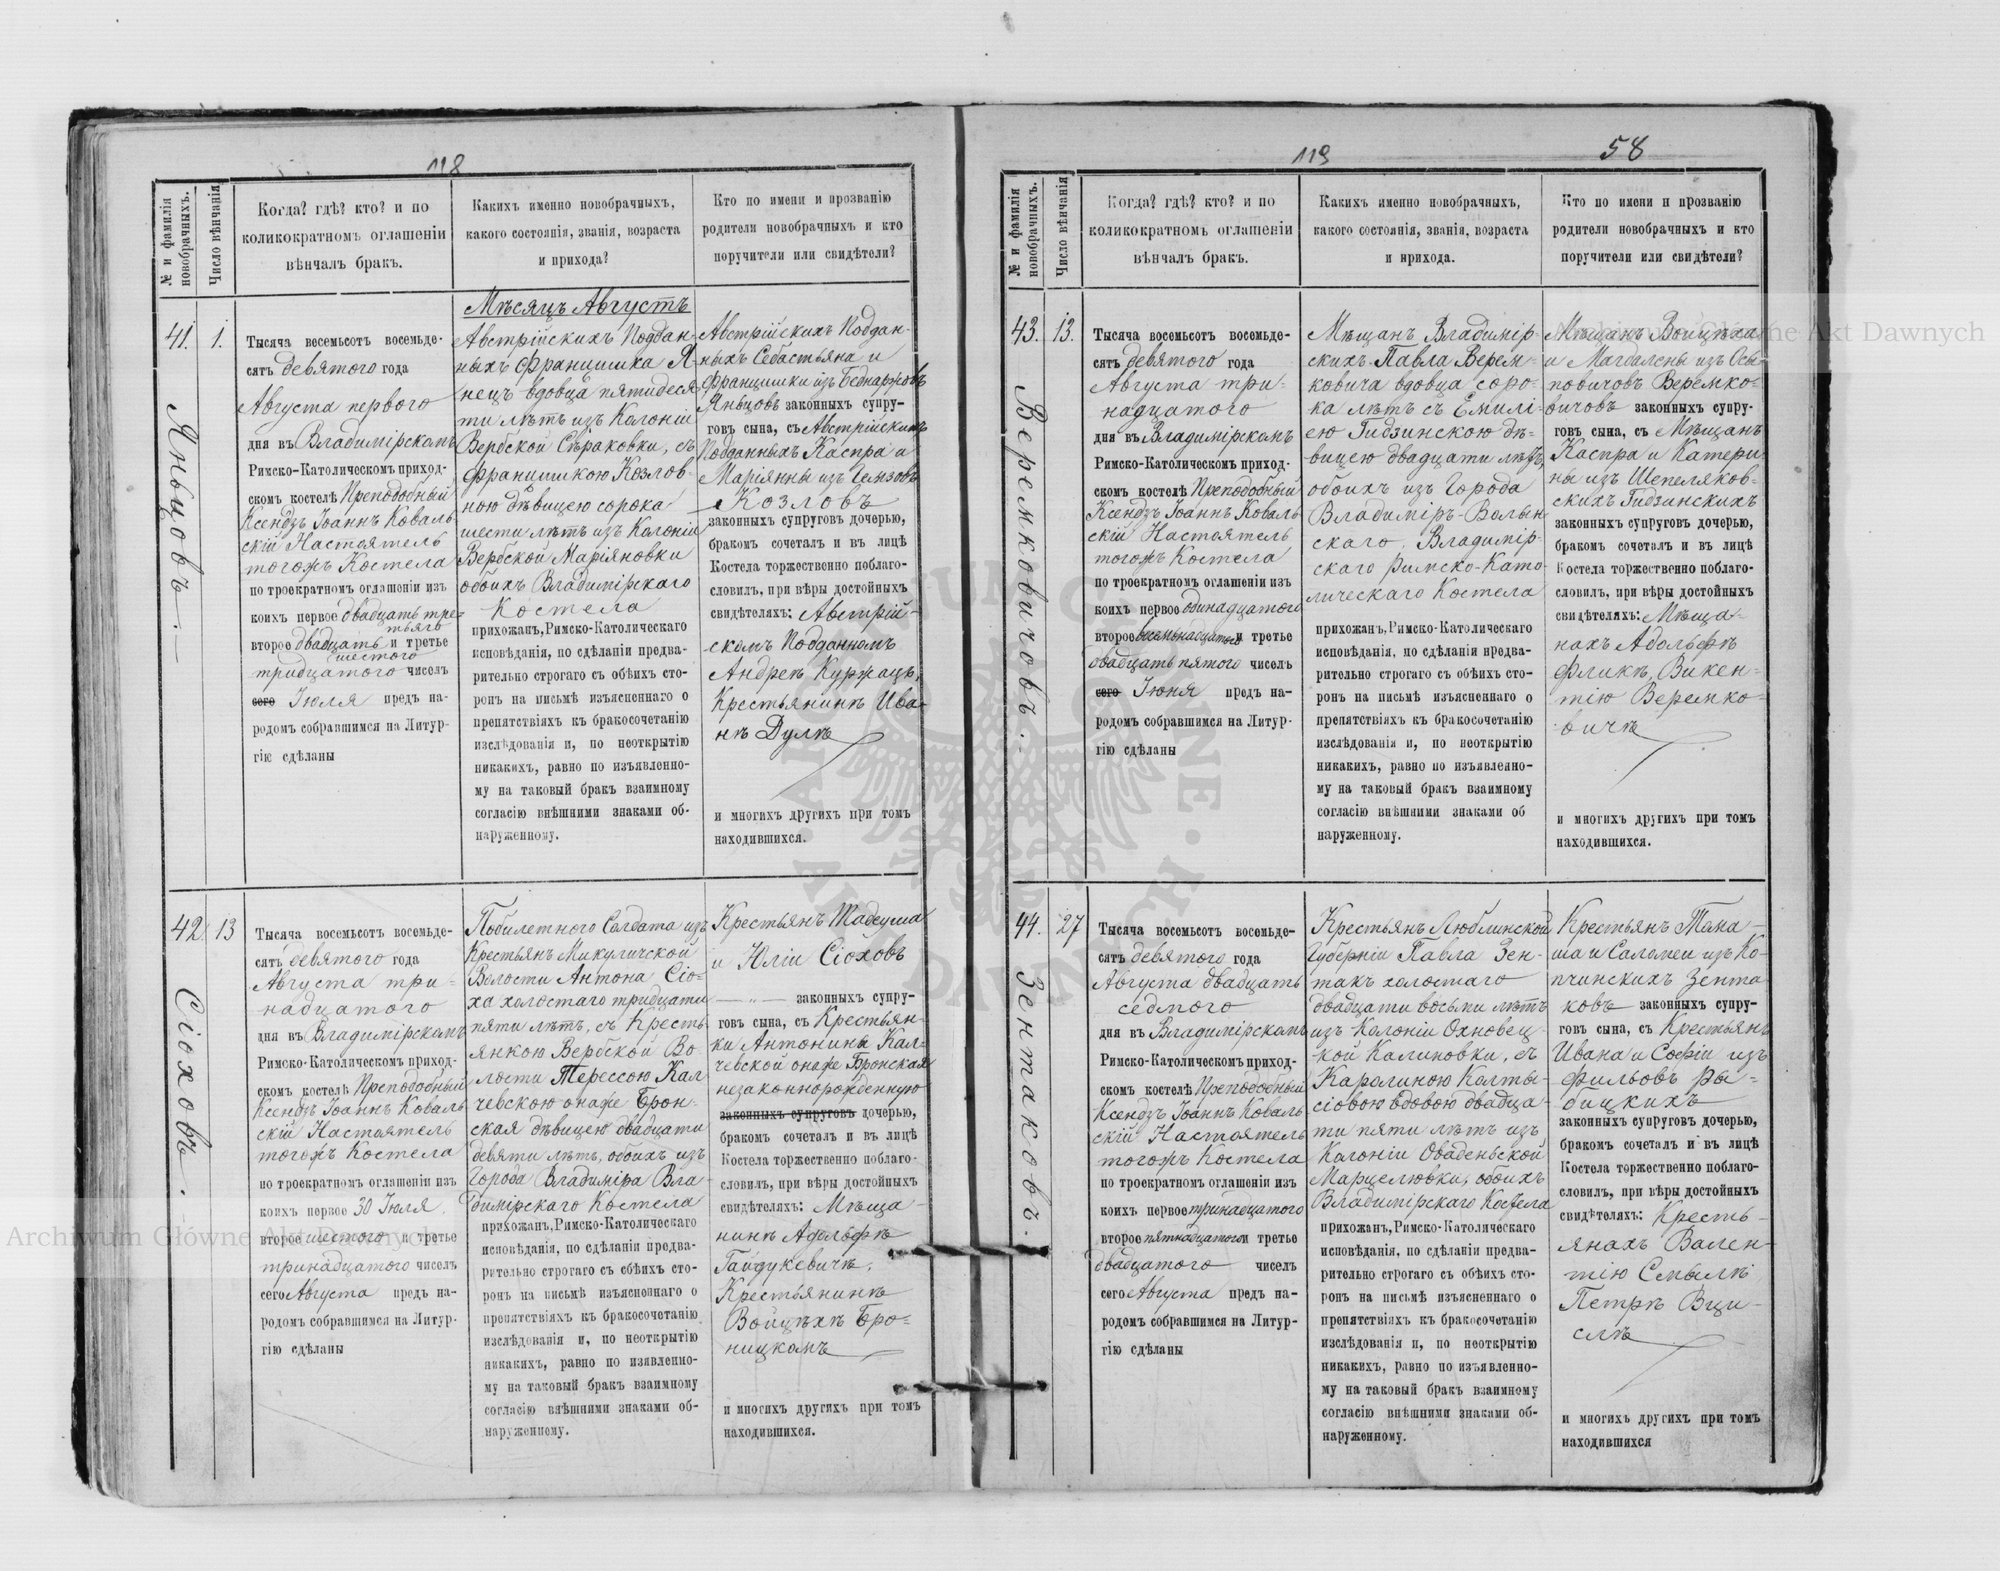 118
№ и фамилія новобрачныхъ.
Число вѣнчанія
Когда? гдѣ? кто? и по
коликократномъ оглашеніи
вѣнчалъ бракъ.
Какихъ именно новобрачныхъ,
какого состоянія, званія, возраста
и прихода?
Кто по имени и прозванію
родители новобрачныхъ и кто
поручители или свидѣтели?
41.
1.
Яньцовъ.
Тысяча весемьсотъ восемьде-
сятъ девятого года
Августа первого
дня въ Владимірскомъ
Римско-Католическомъ приход-
скомъ костелѣ Преподобный
Ксендзъ Іоаннъ Коваль
скій Настоятель
тогожъ Костела
по троекратномъ оглашеніи изъ
коихъ первое двадцать тре-
тьяго
второе двадцать и третье
шестого
тридцатого чиселъ
сего Іюля предъ на-
родомъ собравшимся на Литур-
гію сдѣланы
Мѣсяцъ Августъ
Австрійскихъ Поддан-
ныхъ Францишка Я-
нецъ вдовца пятидеся
ти лѣтъ изъ Колоніи
Вербской Сѣраковки, съ
Францишкою Козлов-
ною дѣвицею сорока
шести лѣтъ изъ Колоніи
Вербской Маріяновки
обоихъ Владимірскаго
Костела
прихожанъ, Римско-Католическаго
исповѣданія, по сдѣланіи предва-
рительно строгаго съ обѣихъ сто-
ронъ на письмѣ изъясненнаго о
препятствіяхъ къ бракосочетанію
изслѣдованія и, по неоткрытію
никакихъ, равно по изъявленно-
му на таковый бракъ взаимному
согласію внѣшними знаками об-
наруженному.
Австрійскихъ Поддан-
ныхъ Себастьяна и
Францишки изъ Беднаржовъ
Яньцовъ законныхъ супру-
говъ сына, съ Австрійскихъ
Подданныхъ Каспра и
Маріянны изъ
Козловъ
законныхъ супруговъ дочерью,
бракомъ сочеталъ и въ лицѣ
Костела торжественно поблаго-
словилъ, при вѣры достойныхъ
свидѣтеляхъ: Австрій-
скомъ Подданномъ
Андреѣ Куржацъ,
Крестьянинѣ Ива-
нѣ Дулѣ
и многихъ другихъ при томъ
находившихся.
42.
13
Сіоховъ.
Тысяча восемьсотъ восемьде-
сятъ девятого года
Августа три-
надцатого
дня въ Владимірскомъ
Римско-Католическомъ приход-
скомъ костелѣ Преподобный
Ксендзъ Іоаннъ Коваль
скій Настоятель
тогожъ Костела
по троекратномъ оглашеніи изъ
коихъ первое 30 Іюля,
второе шестого и третье
тринадцатого чиселъ
сего Августа предъ на-
родомъ собравшимся на Литур-
гію сдѣланы
Побилетного Солдата изъ
Крестьянъ Микуличской
Волости Антона Сіо-
ха холостаго тридцати
пяти лѣтъ, съ Кресть
янкою Вербской Во
лости Терессою Кал
чевскою онаже Брон-
ская дѣвицею двадцати
девяти лѣтъ, обоихъ изъ
Города Владиміра Вла-
димірскаго Костела
прихожанъ, Римско-Католическаго
исповѣданія, по сдѣланіи предва-
рительно строгаго съ обѣихъ сто-
ронъ на письмѣ изъясненнаго о
препятствіяхъ къ бракосочетанію
изслѣдованія и, по неоткрытію
никакихъ, равно по изявленно-
му на таковый бракъ взаимному
согласію внѣшними знаками об-
наруженному.
Крестьянъ Тадеуша
и Юліи Сіоховъ
законныхъ супру-
говъ сына, съ Крестьян-
ки Антонины Кал-
чевской онаже Бронская
незаконнорожденную
законныхъ супруговъ дочерью,
бракомъ сочеталъ и въ лицѣ
Костела торжественно поблаго-
словилъ, при вѣры достойныхъ
свидѣтеляхъ: Мѣща-
нинѣ Адольфѣ
Гайдукевичѣ,
Крестьянинѣ
Войцѣхѣ Бро-
ницкомъ
и многихъ другихъ при томъ
находившихся.
119
58
№ и фамилія новобрачныхъ.
Число вѣнчанія
Когда? гдѣ? кто? и по
коликократномъ оглашеніи
вѣнчалъ бракъ.
Какихъ именно новобрачныхъ,
какого состоянія, званія, возраста
и прихода.
Кто по имени и прозванію
родители новобрачныхъ и кто
поручители или свидѣтели?
43.
13.
Веремковичовъ.
Тысяча восемьсотъ восемьде-
сятъ девятого года
Августа три-
надцатого
дня въ Владимірскомъ
Римско-Католическомъ приход-
скомъ костелѣ Преподобный
Ксендзъ Іоаннъ Коваль
скій Настоятель
тогожъ Костела
по троекратномъ оглашеніи изъ
коихъ первое одинадцатого
второе восемьнадцатого и третье
двадцать пятого чиселъ
сего Іюня предъ на-
родомъ собравшимся на Литур-
гію сдѣланы
Мѣщанъ Владимір-
скихъ Павла Верем-
ковича вдовца соро-
ка лѣтъ съ Емилі-
ею Гидзинскою дѣ-
вицею двадцати лѣтъ,
обоихъ изъ Города
Владиміръ-Волын
скаго, Владимір-
скаго Римско-Като-
лическаго Костела
прихожанъ, Римско-Католическаго
исповѣданія, по сдѣланіи предва-
рительно строгаго съ обѣихъ сто-
ронъ на письмѣ изъясненнаго о
препятствіяхъ къ бракосочетанію
изслѣдованія и, по неоткрытію
никакихъ, равно по изъявленно-
му на таковый бракъ взаимному
согласію внѣшними знаками об
наруженному.
Мѣщанъ Войцѣха
и Магдалены изъ Осы-
повичовъ Веремко-
вичовъ законныхъ супру-
говъ сына, съ Мѣщанъ
Каспра и Катери
ны изъ Шепеляков-
скихъ Гидзинскихъ
законныхъ супруговъ дочерью,
бракомъ сочеталъ и въ лицѣ
Костела торжественно поблаго-
словилъ, при вѣры достойныхъ
свидѣтеляхъ: Мѣща-
нахъ Адольфѣ
Фликѣ, Викен-
тію Веремко-
вичѣ
и многихъ другихъ при томъ
находившихся.
44.
27
Зентаковъ.
Тысяча восемьсотъ восемьде-
сятъ девятого года
Августа двадцать
седмого
дня въ Владимірскомъ
Римско-Католическомъ приход-
скомъ костелѣ Преподобный
Ксендзъ Іоаннъ Коваль
скій Настоятель
тогожъ Костела
по троекратномъ оглашеніи изъ
коихъ первое тринадцатого
второе пятнадцатого и третье
двадцатого чиселъ
сего Августа предъ на-
родомъ собравшимся на Литур-
гію сдѣланы
Крестьянъ Люблинской
Губерніи Павла Зен-
такъ холостаго
двадцати восьми лѣтъ
изъ Колоніи Охновец-
кой Калиновки, съ
Каролиною Колты-
сіовою вдовою двадца-
ти пяти лѣтъ изъ
Колоніи Оваденьской
Марцелювки, обоихъ
Владимірскаго Костела
прихожанъ, Римско-Католическаго
исповѣданія, по сдѣланіи предва-
рительно строгаго съ обѣихъ сто-
ронъ на письмѣ изъясненнаго о
препятствіяхъ къ бракосочетанію
изслѣдованія и, по неоткрытію
никакихъ, равно по изъявленно-
му на таковый бракъ взаимному
согласію внѣшними знаками об-
наруженному.
Крестьянъ Тома-
ша и Саломеи изъ Ко-
пчинскихъ Зента
ковъ законныхъ супру-
говъ сына, съ Крестьянъ
Ивана и Софіи изъ
Фильовъ Ры-
бицкихъ
законныхъ супруговъ дочерью,
бракомъ сочеталъ и въ лицѣ
Костела торжественно поблаго-
словилъ, при вѣры достойныхъ
свидѣтеляхъ: Кресть-
янахъ Вален-
тію Смылѣ
Петрѣ Вци-
слѣ
и многихъ другихъ при томъ
находившихся
Archiwum Główne Akt Dawnych
Archiwum Główne Akt Dawnych
ARCHIWUM GŁÓWNE AKT DAWNYCH